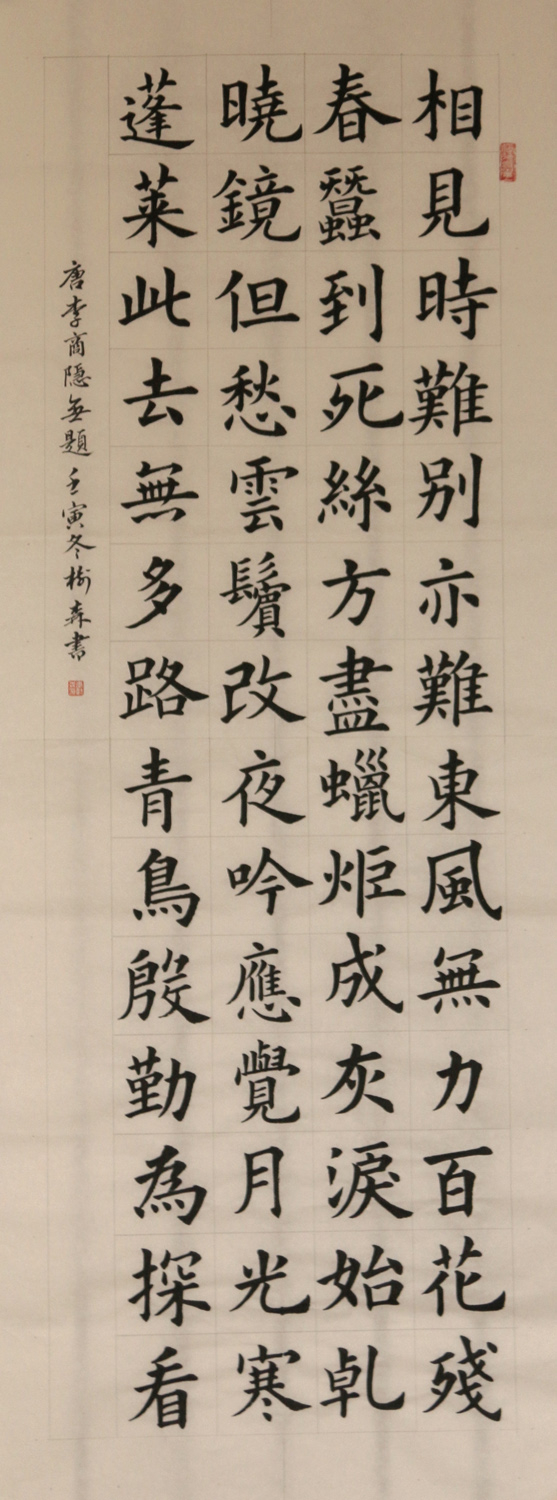 相見時難別亦難東風無力百花殘
春蠶到死絲方盡蠟炬成灰淚始乹
曉鏡但愁雲鬢改夜吟應覺月光寒
蓬萊此去無多路青鳥殷勤為探看
唐李商隱無題壬寅冬樹森書